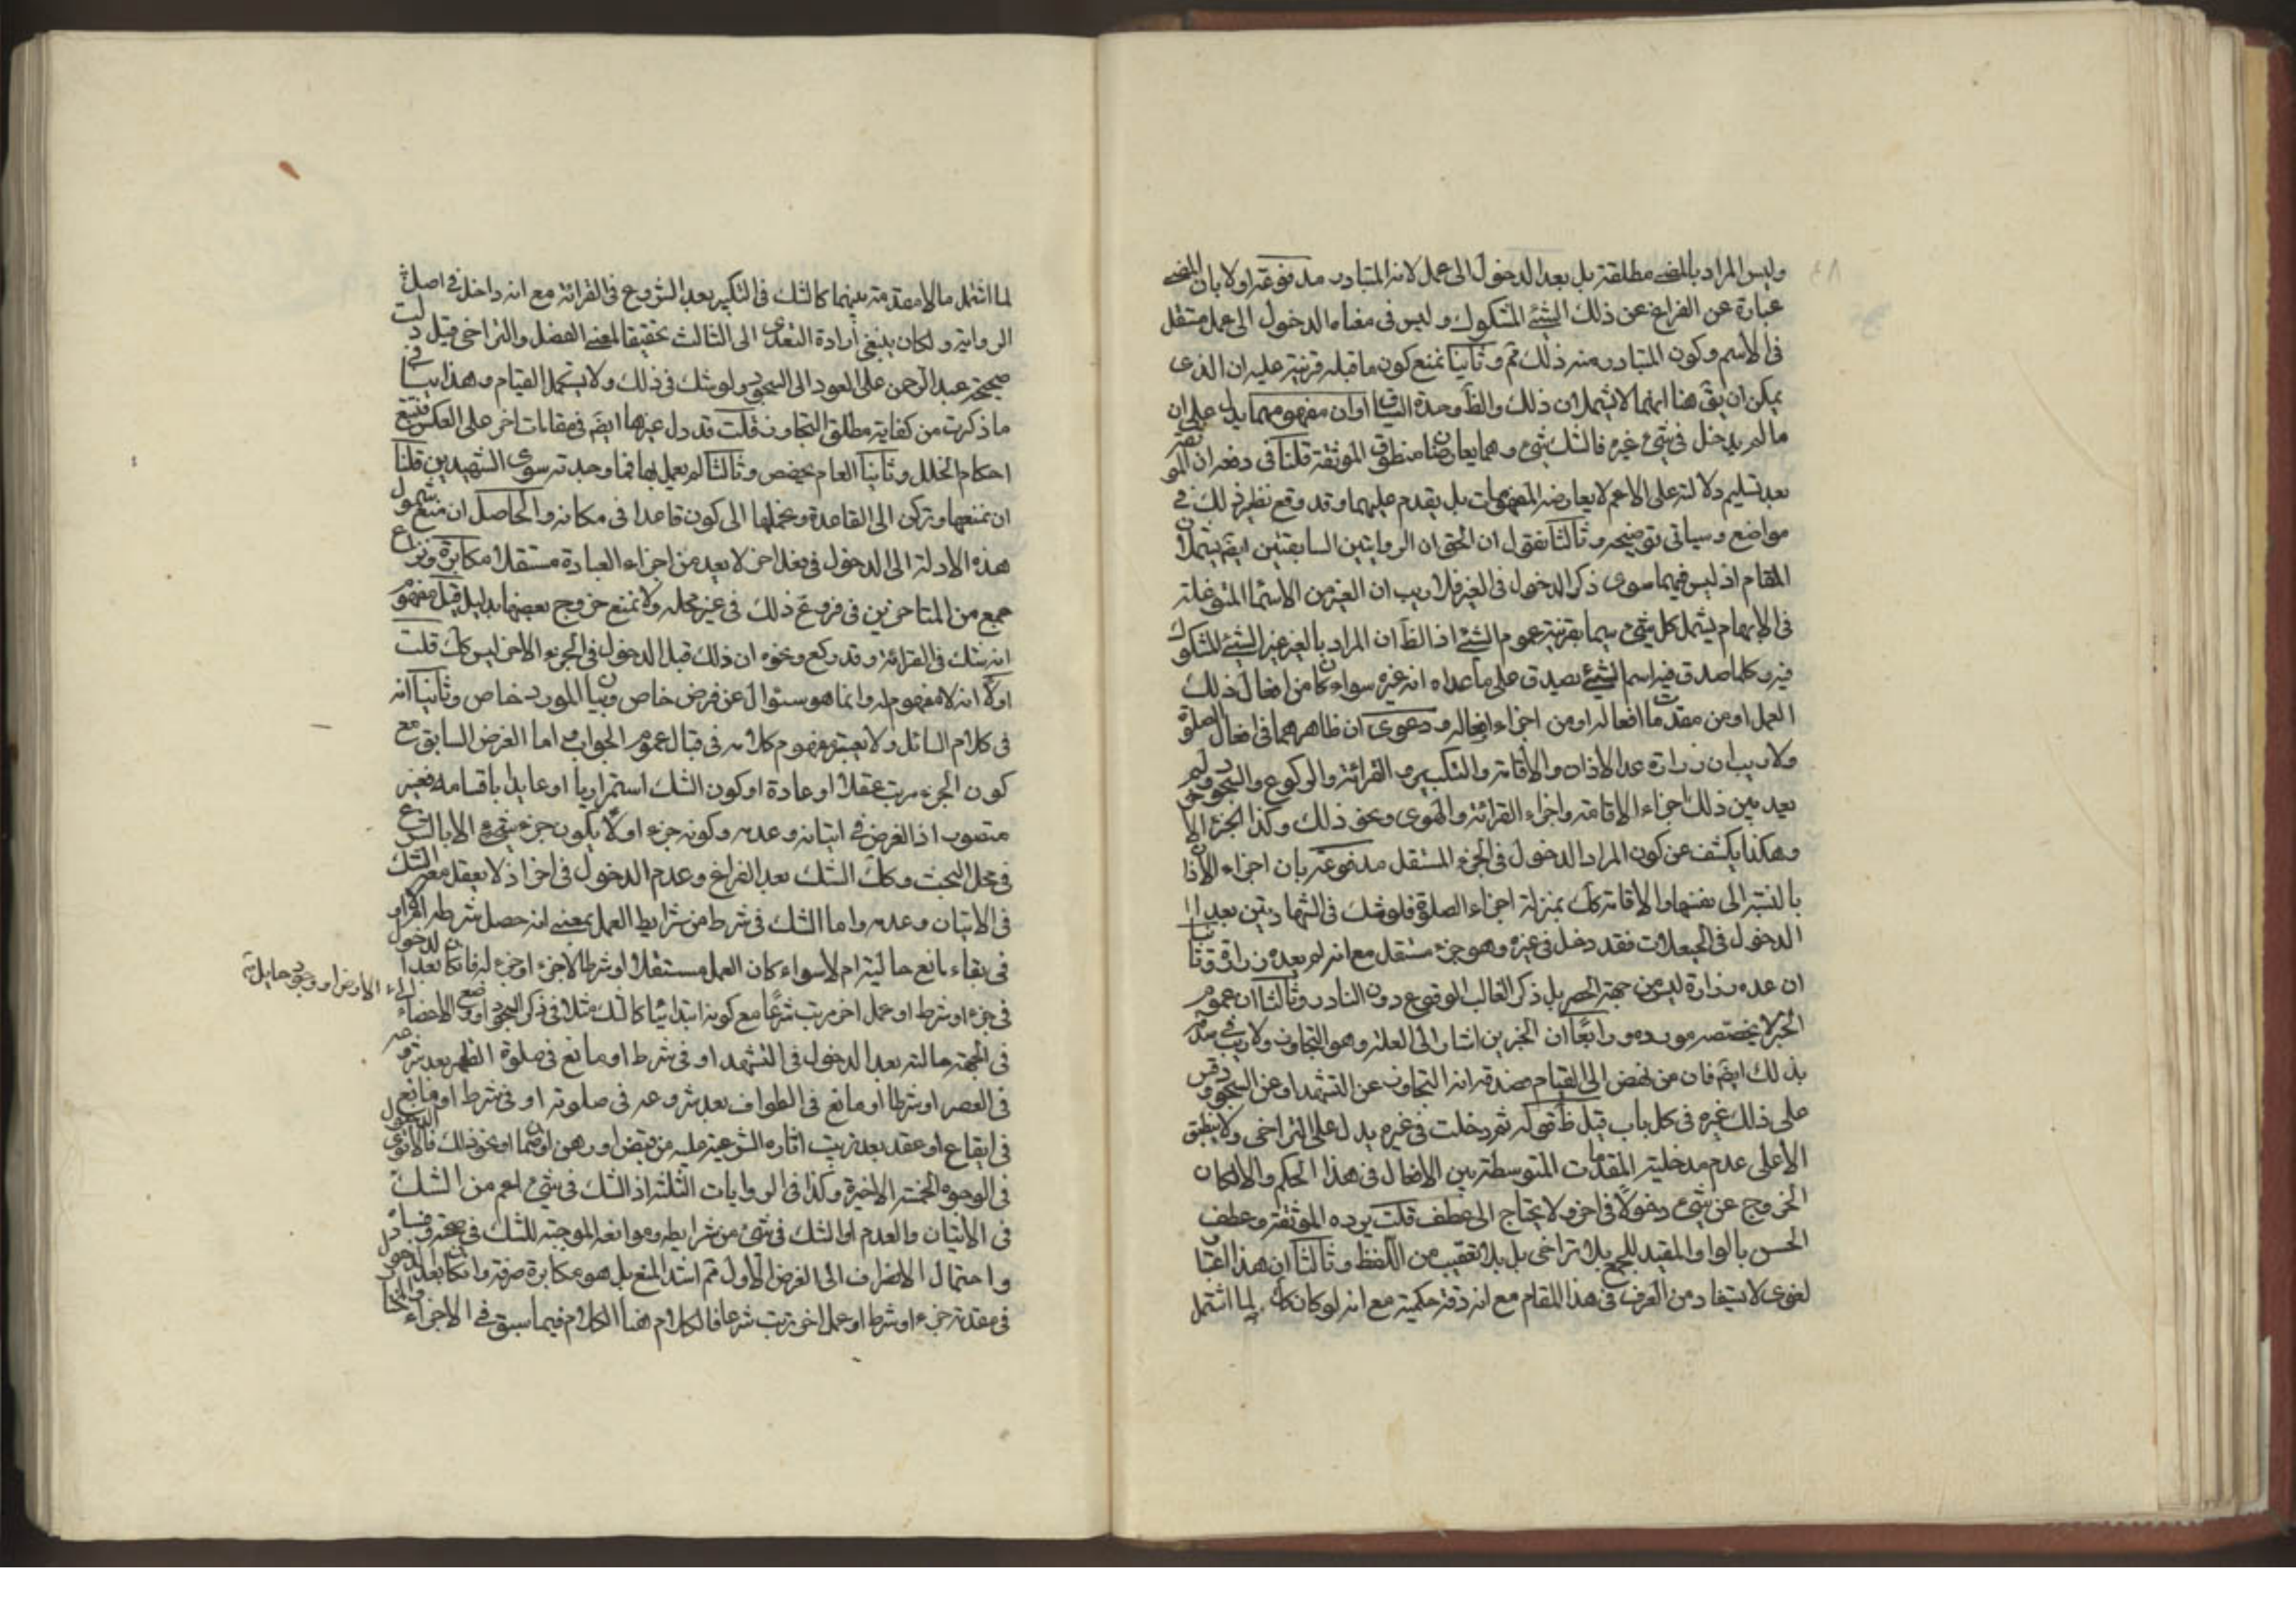 وليس المراد بالمضى مطلقته بل بعد الدخول الى عمل لانه المتبادر مدفوعة اولا بان المضى
عبارة عن الفراغ عن ذلك الشئ المشكوك وليس فى معناه الدخول الى عمل مستقل
فى الاسم وكون المتبادر منه ذلك ثم وثانيا نمنع كون ما قبله قرينة عليه ان الذى
يمكن ان يق هنا انهما لا يشملان ذلك والظ وحدة السياق او ان مفهومهما يدل على ان
ما لم يدخل فى شئ غيره فالشك شئ وهما يعارضان منطوق الموثقة قلنا فى دفعه ان الموثقة
بعد تسليم دلالته على الاعم لا يعارضه المفهومات بل يقدم عليهما وقد وقع نظير ذلك فى
مواضع وسياتى توضيحه وثالثا نقول ان الحق ان الروايتين السابقتين ايضم يشملان
المقام اذ ليس فيهما سوى ذكر الدخول فى الغير فلا ريب ان الغير من الاسماء المتوغلة
فى الابهام يشمل كل شئ سيما بقرينة عموم الشئ اذ الظ ان المراد بالغير غير الشئ المشكوك
فيه وكلما صدق فيه اسم الشئ يصدق على ما عداه انه غيره سواء كان من افعال ذلك
العمل او من مقدمات افعاله او من اجزاء افعاله ودعوى ان ظاهرهما فى افعال الصلوة
ولا ريب ان زرارة عد الاذان والاقامة والتكبير والقرائة والركوع والسجود ولم
يعد بين ذلك اجزاء الاقامة واجزاء القرائة والهوى ونحو ذلك وكذا الجزء
وهكذا يكشف عن كون المراد الدخول فى الجزء المستقل مدفوعة بان اجزاء الاذان
بالنسبة الى نفسها والاقامة كك بمنزلة اجزاء الصلوة فلو شك فى الشهادتين بعد
الدخول فى الحيعلات فقد دخل فى غيره وهو جزء مستقل مع انه لم يعده زرارة وثانيا
ان عده زرارة ليس من جهة الحصر بل ذكر الغالب الوقوع دون النادر وثالثا ان عموم
الخبر لا يخصصه مورده ورابعا ان الخبرين اشارا الى العلة وهو التجاوز ولا ريب فى صدقه
بذلك ايضم فان من نهض الى القيام صدق انه التجاوز عن التشهد او عن السجود وقس
على ذلك غيره فى كل باب قيل ظ قوله ثم دخلت فى غيره يدل على التراخى ولا ينطبق
الا على عدم مدخلية المقدمات المتوسطة بين الافعال فى هذا الحكم والا لكان
الخروج عن شئ دخولا فى اخر ولا يحتاج الى عطف قلت يرده الموثقة وعطف
الحسن بالواو المقيد للجمع بلا تراخى بل بلا تعقيب من اللفظ وثالثا ان هذا اعتبار
لغوى لا يستفاد من العرف فى هذا المقام مع انه دقة حكمية مع انه لو كان كك لما اشتمل
لما اشتمل ما لا مقدمة بينهما كالشك فى التكبير بعد الشروع فى القرائة مع انه داخل فى اصل
الرواية ولكان ينبغى ارادة التعدى الى الثالث تحقيقا لمعنى الفصل والتراخى قيل دلت
صحيحة عبد الرحمن على العود الى السجود ولو شك فى ذلك ولا يستكمل القيام وهذا ينافى
ما ذكرت من كفاية مطلق التجاوز قلت قد دل غيرها ايضم فى مقامات اخر على العكس فتتبع
احكام الخلل وثانيا العام يخصص وثالثا لم يعمل بها فما وجدته سوى الشهيدين قلنا
ان نمنعها ونركن الى القاعدة ونحملها الى كون قاعدا فى مكانه والحاصل ان منع شمول
هذه الادلة الى الدخول فى فعل اخر لا يعد من اجزاء العبادة مستقلا مكابرة ونزاع
جمع من المتاخرين فى فروع ذلك فى غير محله ولا نمنع خروج بعضها بدليل قيل مفهوم
انه شك فى القرائة وقد ركع ونحوه ان ذلك قبل الدخول فى الجزء الاخر ليس كك قلت
اولا انه لا مفهوم له وانما هو سئوال عن فرض خاص وبيان المورد خاص وثانيا انه
فى كلام السائل ولا يعتبر مفهوم كلامه فى قبال عموم الجواب اما الفرض السابق مع
كون الجزء مرتب عقلا او عادة او كون الشك استمراريا او عايدا باقسامه فغير
متصور اذ الفرض فى اتيانه وعدمه وكونه جزء اولا يكون جزء شئ الا بالشرع
فى محل البحث وكك الشك بعد الفراغ وعدم الدخول فى اخر اذ لا يعقل معه الشك
فى الاتيان وعدمه واما الشك فى شرط من شرايط العمل بمعنى انه حصل شرطه ام لا او
فى بقاء مانع حال التيام ام لا سواء كان العمل مستقلا او شرطا لاجزء او جزء له فان كان بعد الدخول
فى جزء او شرط او عمل اخر مرتب شرعا مع كونه ابتدائيا كالشك مثلا فى ذكر السجود او وضع الاعضاء
الى الارض او وجود حايل ثم
فى الجبهة حالته بعد الدخول فى التشهد او فى شرط او مانع فى صلوة الظهر بعد شروعه
فى العصر او شرط او مانع فى الطواف بعد شروعه فى صلوته او فى شرط او مانع
فى ايقاع او عقد بعد ترتيب اثاره الشرعية عليه من قبض او رهن او ضمان او نحو ذلك فالاقوى الدخول
فى الوجوه الخمسة الاخيرة وكذا فى الروايات الثلثة اذ الشك فى شئ اعم من الشك
فى الاتيان والعدم او الشك فى شئ من شرايطه وموانعه الموجبة للشك فى صحته وفساده
واحتمال الانصراف الى الفرض الاول ثم اشد المنع بل هو مكابرة صرفة وان كان بعد الدخول
فى مقدمة جزء او شرط او عمل اخر مرتب شرعا فالكلام هنا الكلام فيما سبق فى الاجزاء